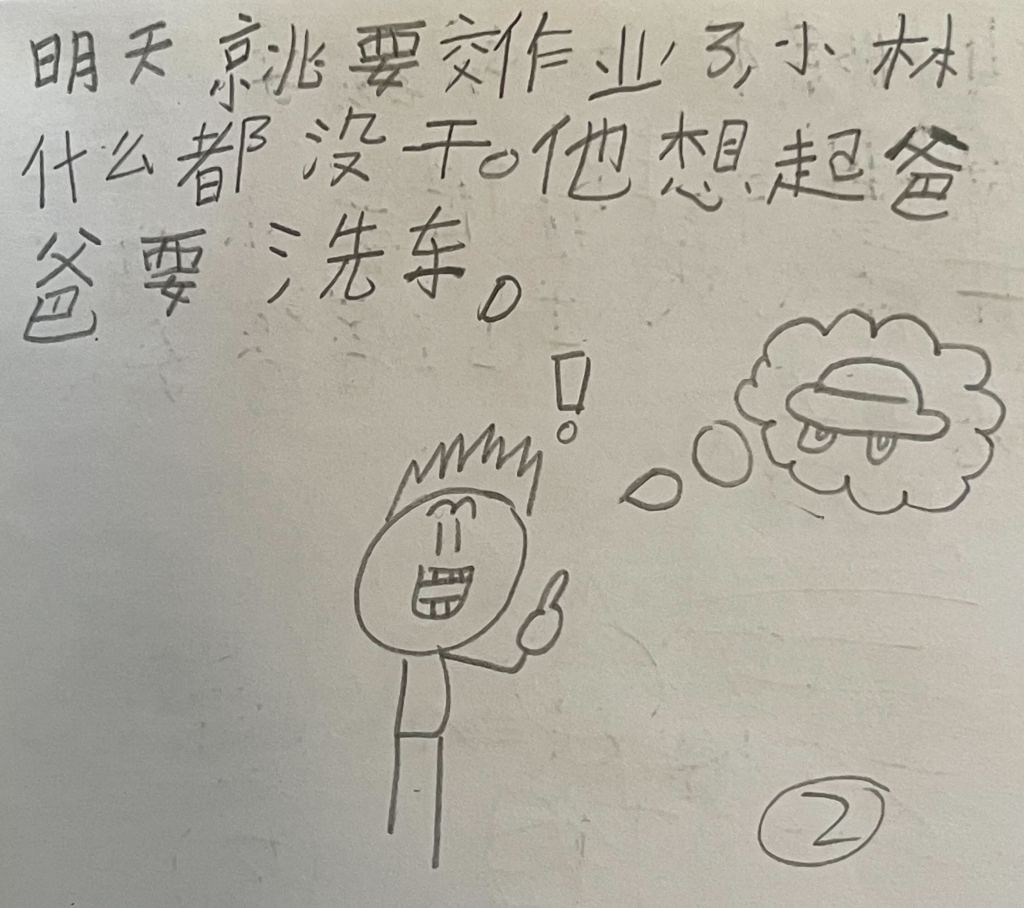 明天就要交作业了,小林
什么都没干。他想起爸
爸要洗车。
!
2